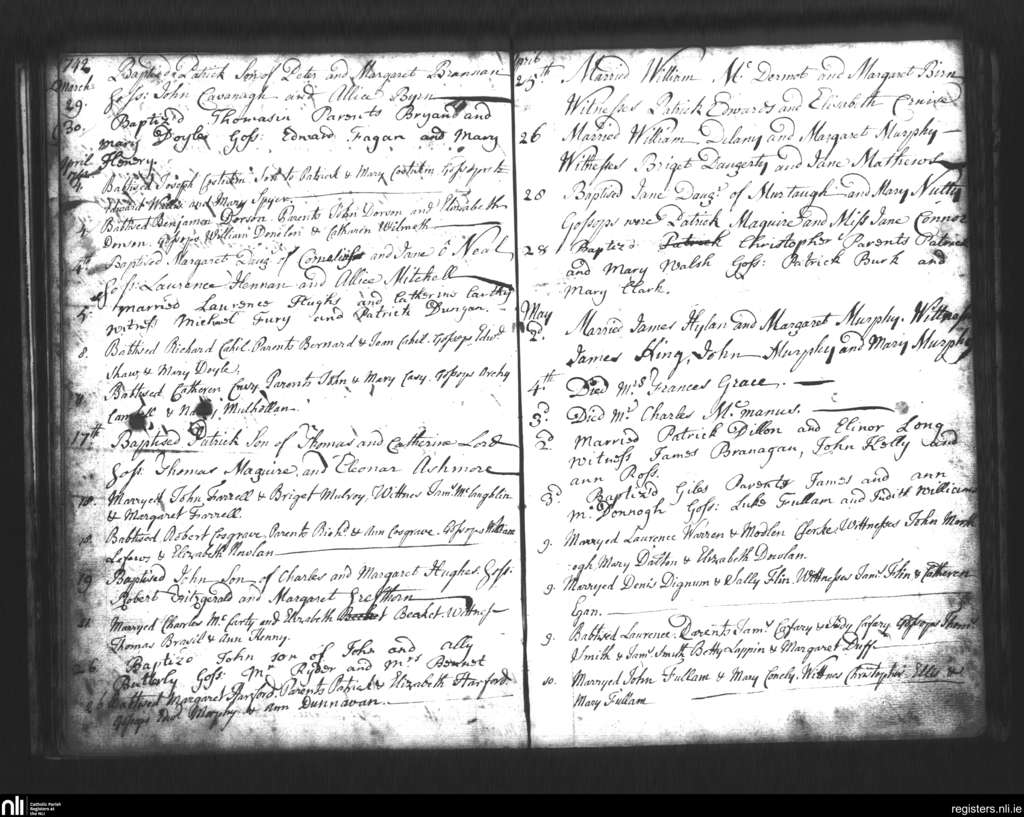 1742
March Baptised Patrick Son of Peter and Margaret Brannan
29. Goss: John Cavanagh and Allice Byrn
30. Baptiz'd Thomasin Parents Bryan and
mary Doyle Goss: Edward Fagan and Mary
April Flenery.
4. Bathsed Joseph Costikin Son to Patrick & Mary Costikin
Edward and Mary
4. Bathsed Benjamin Dorson Parents John Dorson and Elizabeth
Dorson. Gossops William Donolan & Catheren Wilmoth
4th Baptised Margaret Daugr of Cornelius and Jane O Neal
Goss: Laurence Hennan and Allice Mitchell
5. married Laurence Hughs and Catherine Carthy
witness Michael Fury and Patrick Dungan.
8. Bathsed Richard Cahil. Parents Bernard & Joan Cahil. Gossops Edwd
Shaw & Mary Doyle.
Bathsed Catheren Casy Parents John & Mary Casy. Gossops
& Mulhollan
17th Baptised Patrick Son of Thomas and Catherine Lord
Goss: Thomas Maguire, and Eleonar Ashmore
18. Marryed John Farrell & Briget Mulroy, Wittnes Jams McLaughlin
& Margaret Farrell.
18. Bathsed Robert Cosgrave. Parents Richd & Ann Cosgrave. Gossops William
& Elizabeth Nowlan
19 Baptised John Son of Charles and Margaret Hughes. Goss:
Robert Fitzgerald and Margaret
21. Marryed Charles Mc Carty and Elizabeth Becket. Wittness
Thomas Brasil & Ann Henny.
26 Baptizd John son of John and Ally
Butterly Goss: Mr Ryder and Mrs Bennet
26 Bathsed Margaret Harford. Parents Patrick & Elizabeth Harford
Gossops Murphy & Ann Dunnavan.
April
25th Married William Mc Dermot and Margaret Birn
Witnesses Patrick Edwards and Elisabeth Cruise
26 Married William Delany and Margaret Murphy
Witnesses Briget Daugerty and Jane Mathews
28 Baptised Jane Daugr of Murtaugh and Mary Nulty
Gossops were Patrick Maguire and Miss Jane Connor
28 Baptizd Patrick Christopher Parents Patrick
and Mary Walsh Goss: Patrick Burk and
Mary Clark.
May
2d. Married James Hylan and Margaret Murphy. Wittness
James King, John Murphy and Mary Murphy
4th Died Mrs Frances Grace.
3d. Died Mr Charles Mc manus.
2d. married Patrick Dillon and Elinor Long
witness James Branagan, John Kelly and
ann Ross.
3d. Baptizd Giles Parents James and ann
Mc Donnogh Goss: Luke Fullam and Judith Williams
9. Marryed Laurence Warren & Modlen Clerke Wittnesses John
Mary Dalton & Elizabeth Dowlan.
9. Marryed Denis Dignum & Sally Flin. Wittnesses Jams Flin & Catheren
Egan.
9. Bathsed Laurence. Parents Jams Cafary & Judy Cafary Gossops Thoms
Smith & Jams Smith Betty Lappin & Margaret Duff
10. Marryed John Fullam & Mary Conely. Wittnes Christopher Ellis &
Mary Fullam
nli Catholic Parish
Registers at
the NLI
registers.nli.ie